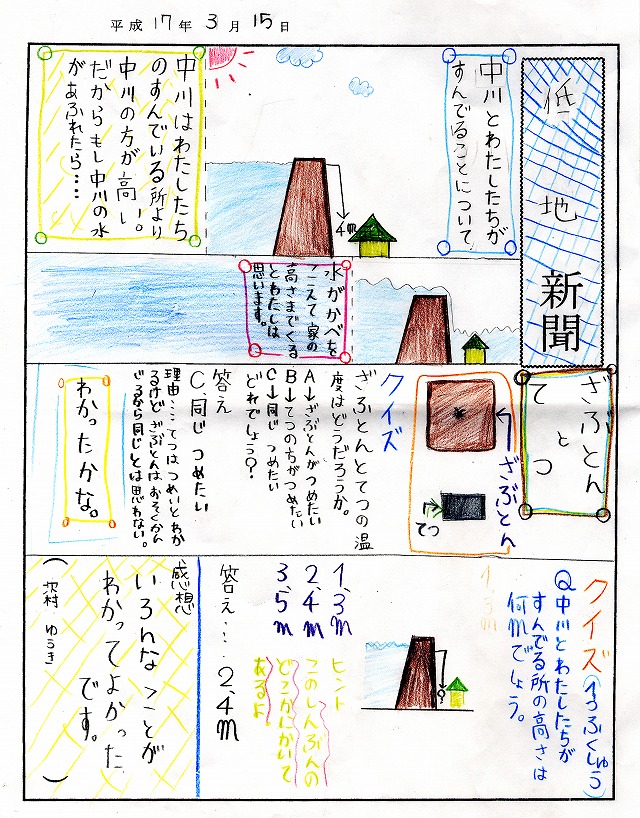 平成17年3月15日
低地新聞
中川とわたしたちが
すんでることについて
4m
中川はわたしたち
のすんでいる所より
中川の方が高い。
だからもし中川の水
があふれたら・・・
水がかべを
こえて家の
高さまでくる
とわたしは
思います。
ざぶとん
と
てつ
←ざぶとん
てつ
クイズ
ざぶとんとてつの温
度はどうだろうか。
A→ざぶとんがつめたい
B→てつの方がつめたい
C→同じつめたい
どれでしょう?
答え
C、同じつめたい
理由・・・てつはつめいとわか
るけどざぶとんはおそくかん
じるから同じとは思わない。
わかったかな。
クイズ(1つふくしゅう)
Q中川とわたしたちが
すんでる所の高さは
何mでしょう。
?
1、3m
2、4m
3、5m
ヒント
このしんぶんの
どこかにかいて
あるよ
答え・・・2、4m
感想
いろんなことが
わかってよかった
です。
(沢村 ゆうき)